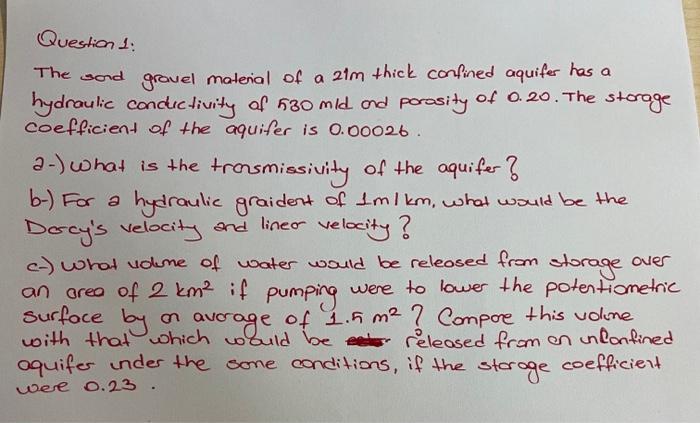 Question 1:
The sand gravel material of a 21m thick confined aquifer has a
hydraulic conductivity of 530 m/d and porosity of 0.20. The storage
coefficient of the aquifer is 0.00026.
a-) what is the transmissivity of the aquifer?
b-) For a hydraulic graident of 1m/km, what would be the
Darcy's velocity and linear velocity?
c-) what volume of water would be released from storage over
an area of 2 km² if pumping were to lower the potentiometric
surface by an average of 1.5 m² ? Compare this volume
with that which would be released from an unconfined
aquifer under the same conditions, if the storage coefficient
were 0.23 .